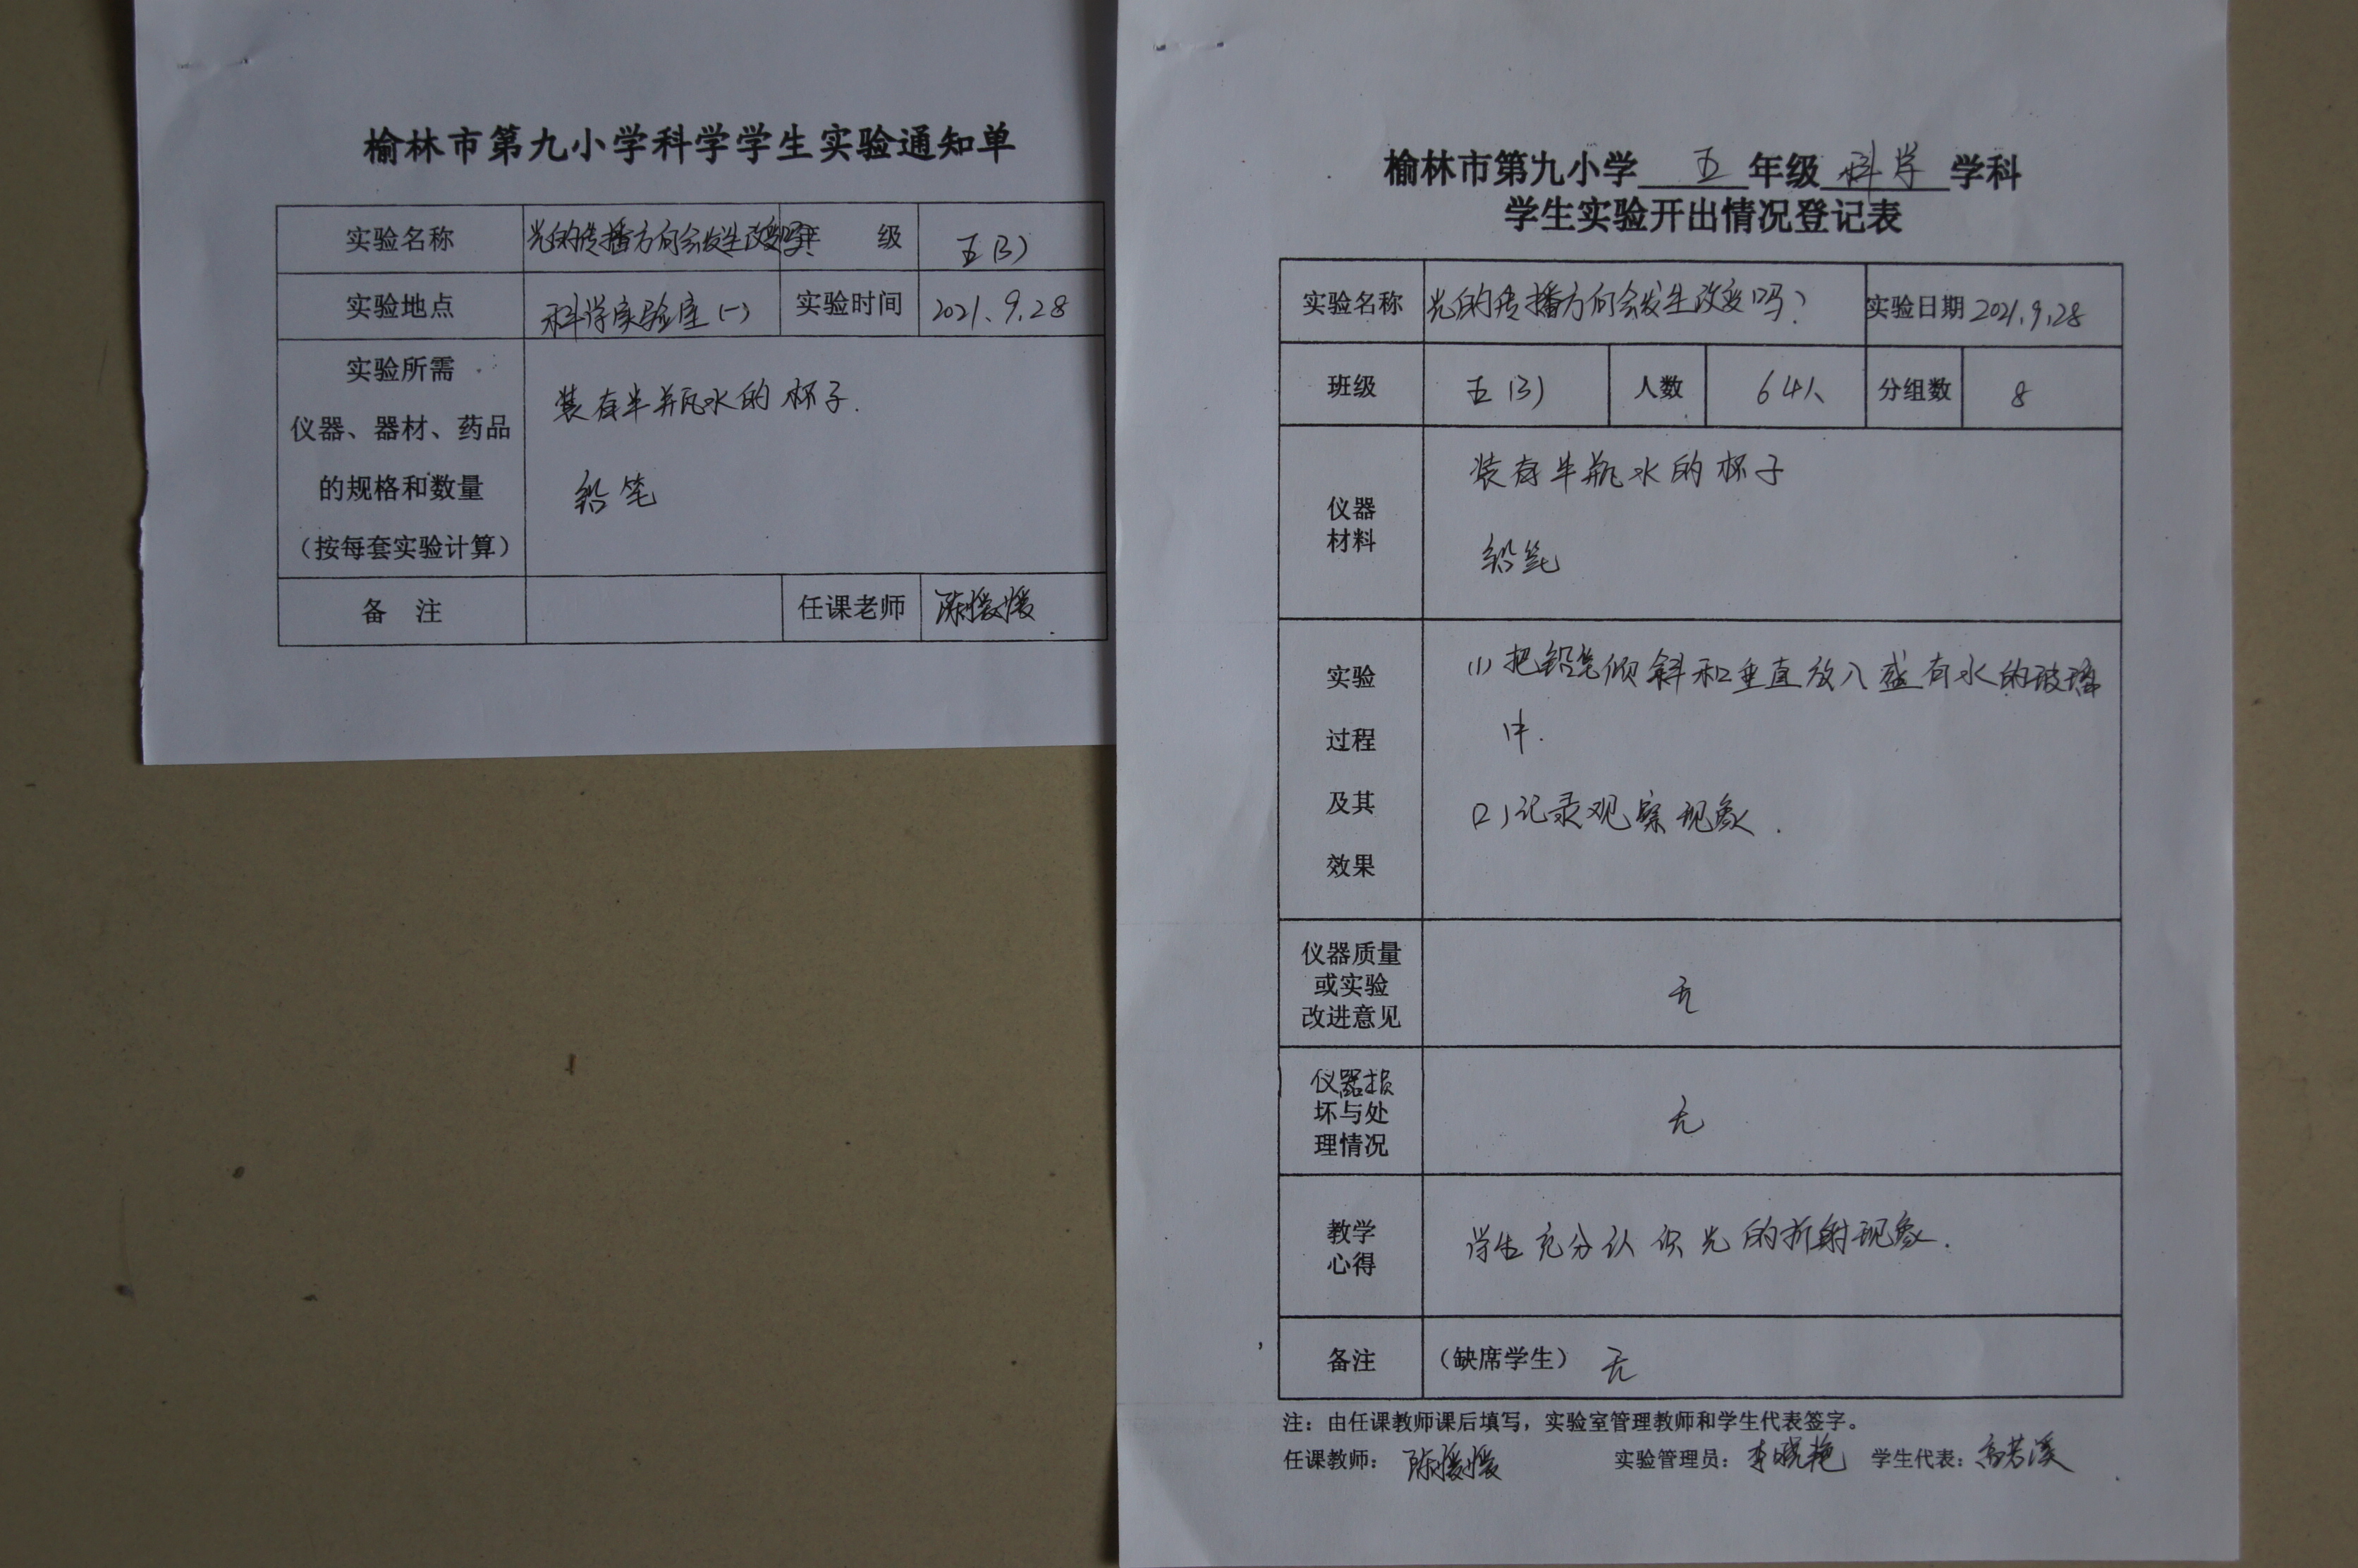 榆林市第九小学科学学生实验通知单
实验名称 光的传播方向会发生改变吗? 级 五(3)
实验地点 科学实验室(一) 实验时间 2021.9.28
实验所需
仪器、器材、药品
的规格和数量
(按每套实验计算)
装有半瓶水的杯子.
铅笔
备 注 任课老师 陈媛媛
榆林市第九小学 五 年级 科学 学科
学生实验开出情况登记表
实验名称 光的传播方向会发生改变吗? 实验日期 2021.9.28
班级 五(3) 人数 64人 分组数 8
仪器
材料
装有半瓶水的杯子
铅笔
实验
过程
及其
效果
(1)把铅笔倾斜和垂直放入盛有水的玻璃
中.
(2)记录观察现象.
仪器质量
或实验
改进意见
无
仪器损
坏与处
理情况
无
教学
心得
学生充分认识光的折射现象.
备注 (缺席学生) 无
注：由任课教师课后填写，实验室管理教师和学生代表签字。
任课教师： 陈媛媛 实验管理员：李晓艳 学生代表：高若溪